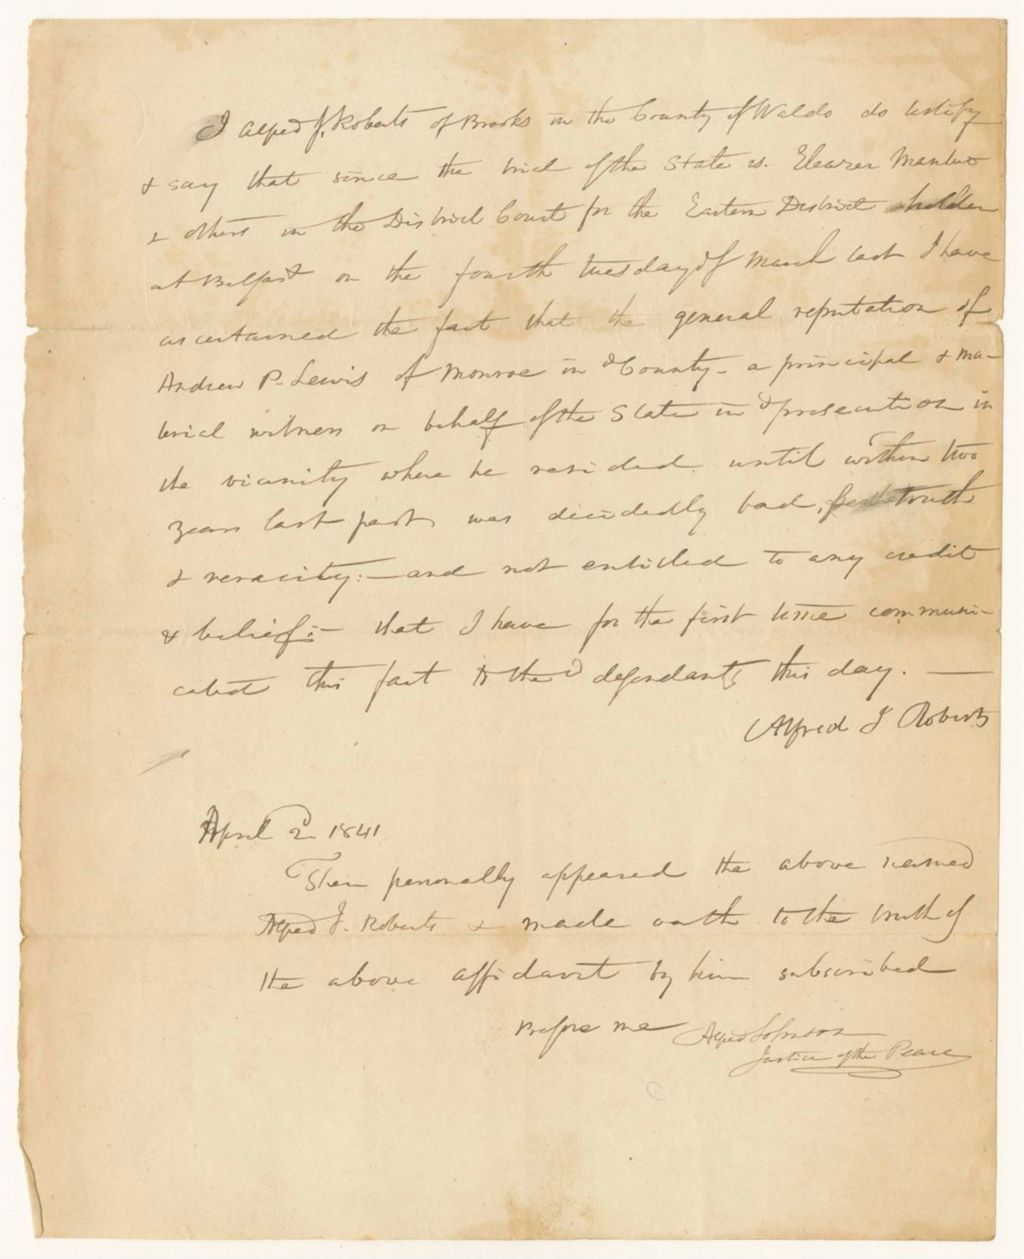 I Alfred J. Roberts of Brooks in the County of Waldo do testify
& say that since the trial of the State vs. Eleazer
& others in the District Court for the Eastern District holden
at Belfast on the fourth tuesday of March last I have
ascertained the fact that the general reputation of
Andrew P. Lewis of Monroe in sd County - a principal & ma-
terial witness on behalf of the State in sd prosecution in
the vicinity where he resided until within two
years last past, was decidedly bad, for truth
& veracity: - and not entitled to any credit
& belief: - that I have for the first time communi-
cated this fact to the sd defendants this day. —
Alfred J Roberts
April 2d 1841
Then personally appeared the above named
Alfred J. Roberts & made oath to the truth of
the above affidavit by him subscribed
Before me Alfred Johnson
Justice of the Peace